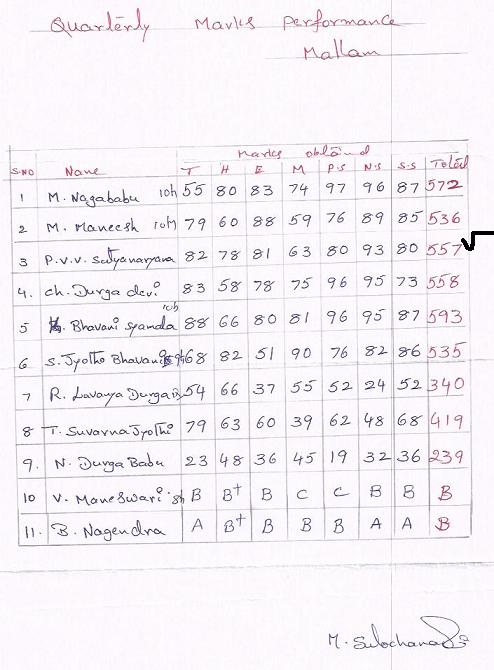 Quarterly Marks Performance
Mallam
Marks obtaind
S.NO Name T H E M P.S N.S S.S Total
1 M. Nagababu 10th 55 80 83 74 97 96 87 572
2 M. Maneesh 10th 79 60 88 59 76 89 85 536
3 P.V.V. Satyanaryana 82 78 81 63 80 93 80 557
4. Ch. Durga devi 83 58 78 75 96 95 73 558
5 Bhavani syamala 10th 88 66 80 81 96 95 87 593
6 S. Jyothi Bhavani 9th 68 82 51 90 76 82 86 535
7 R. Lavanya Durga 54 66 37 55 52 24 52 340
8 T. Suvarna Jyothi 79 63 60 39 62 48 68 419
9. N. Durga Babu 23 48 36 45 19 32 36 239
10 V. Maneswari B B+ B C C B B B
11. B. Nagendra A B+ B B B A A B
M. Sulochana